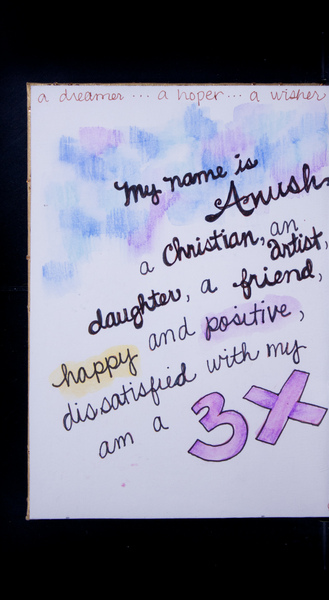 a dreamer ... a hoper ... a wisher
my name is
Anush
a Christian, an
artist,
daughter, a friend,
happy and positive,
dissatisfied with my
am a 3X